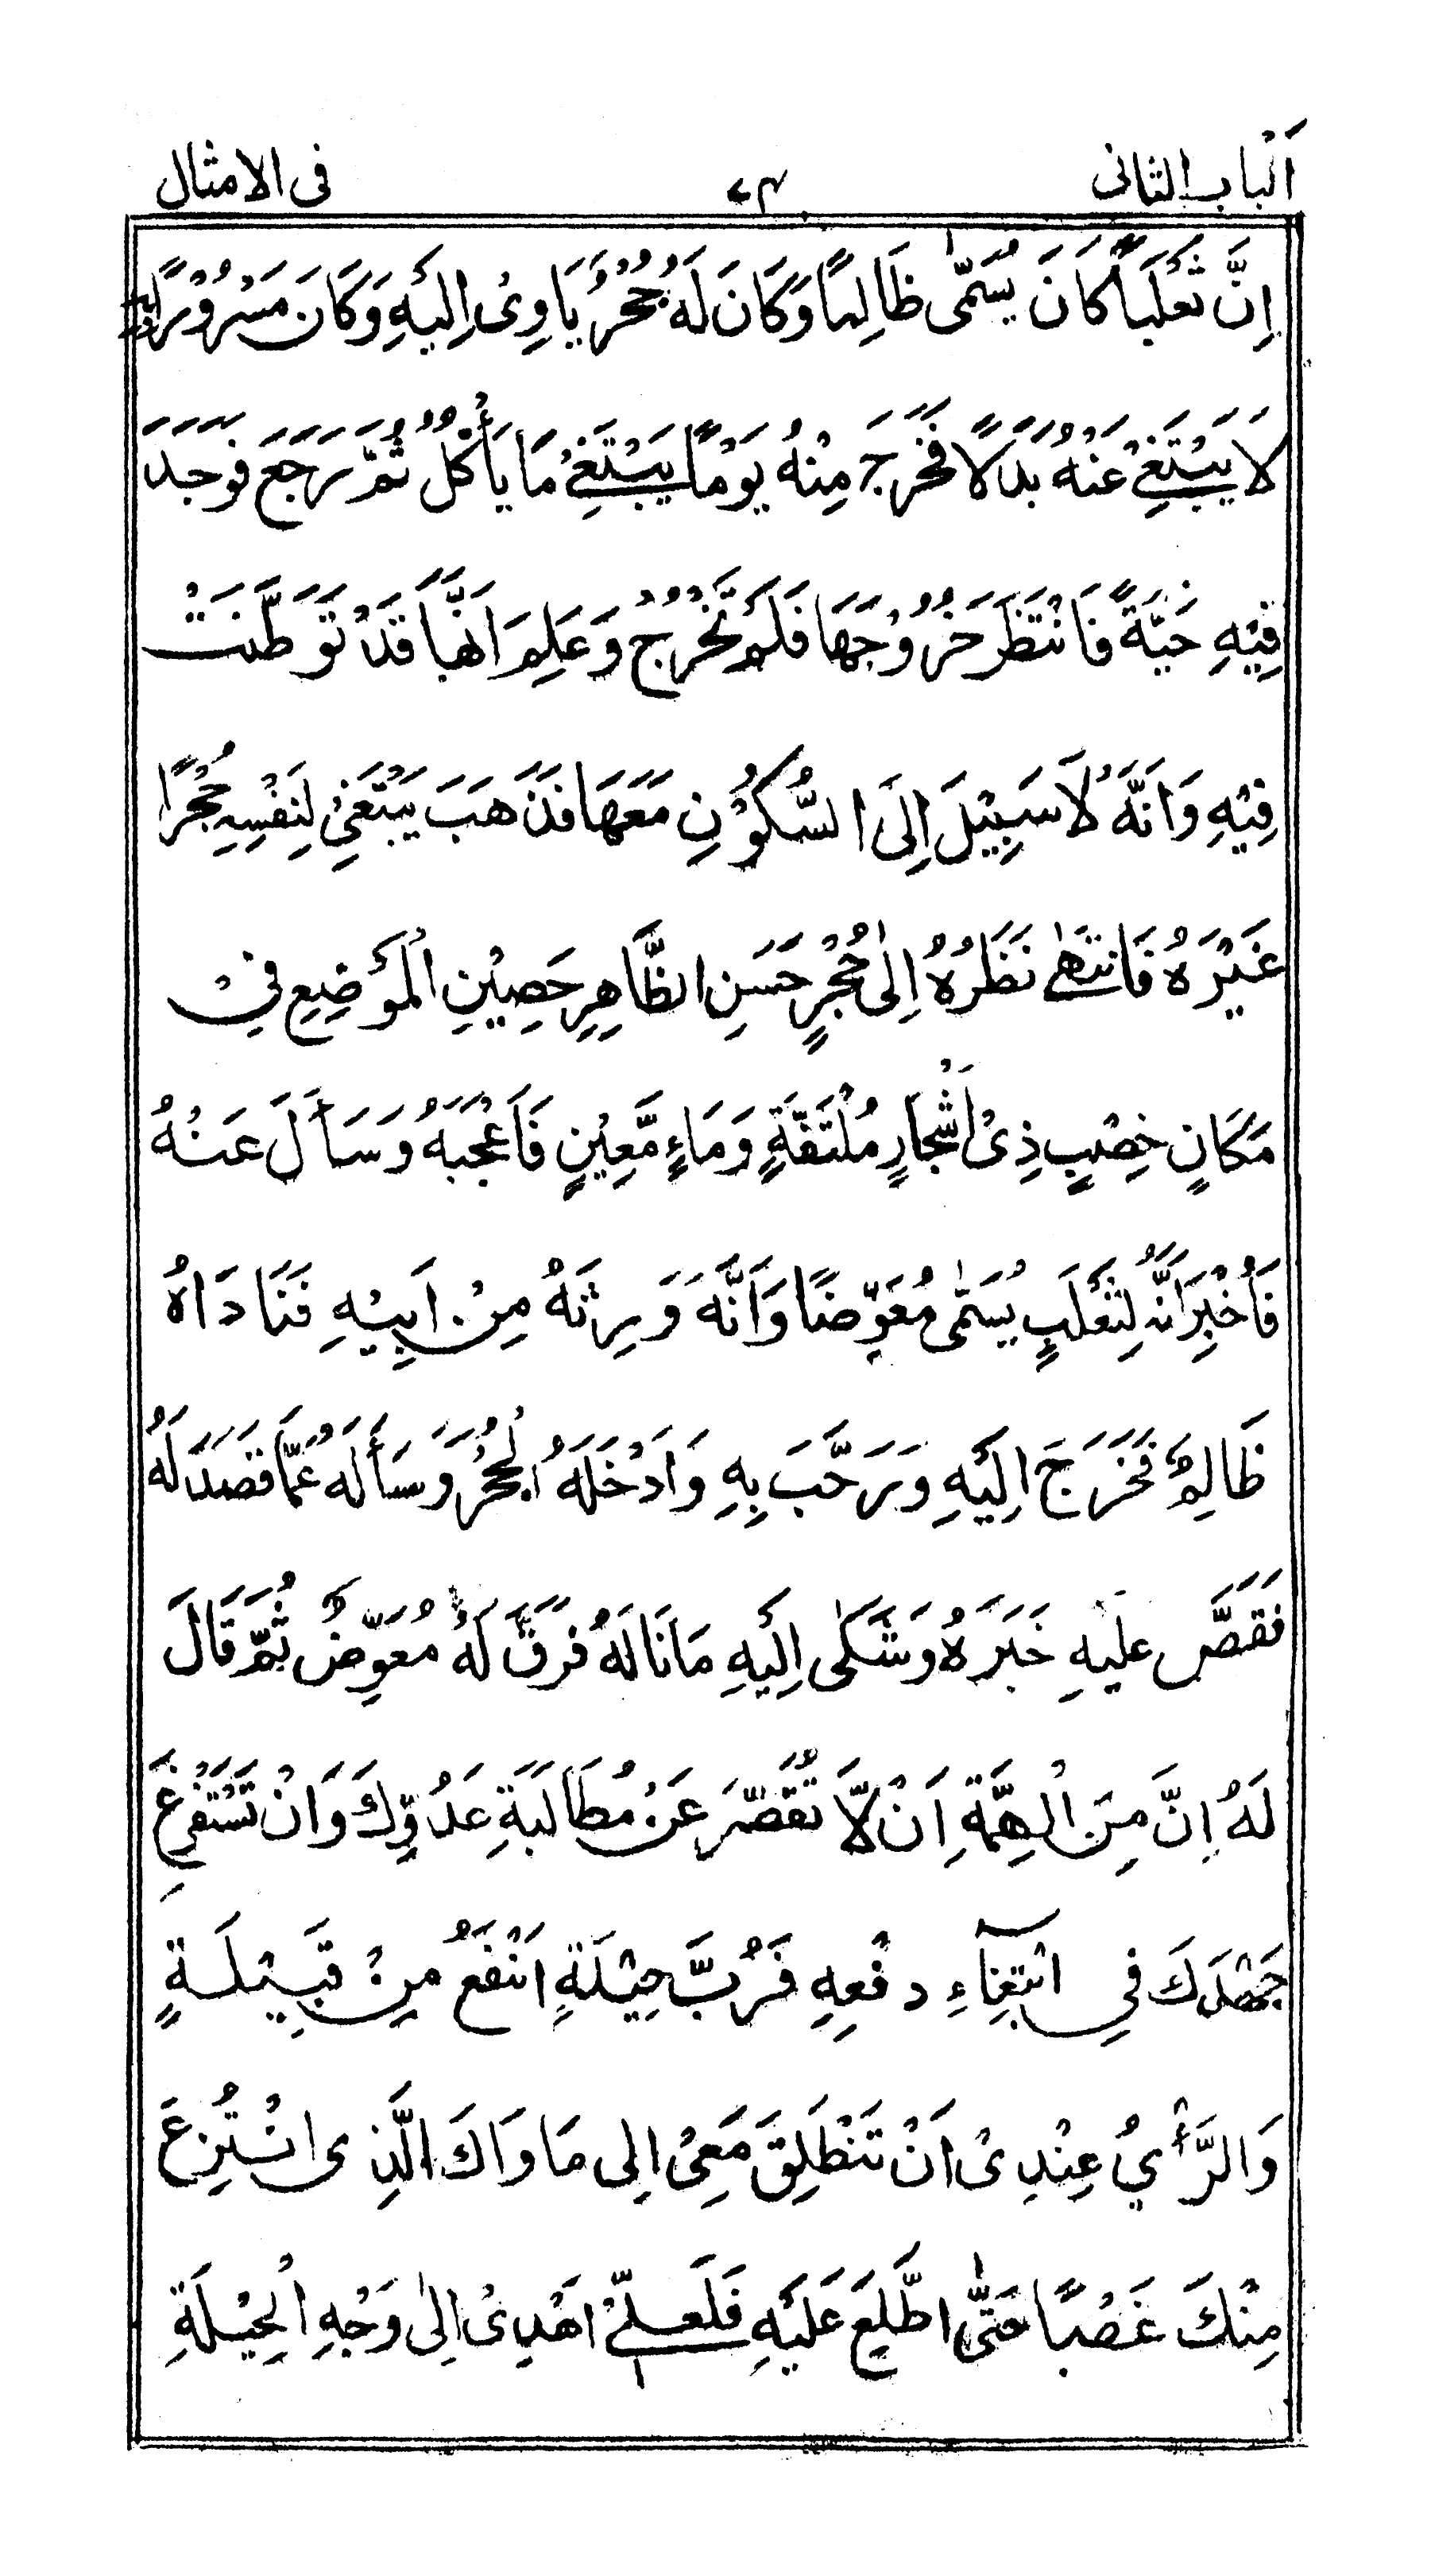 اَلْبابُ الثانى ٧٤ فى الامثال
اِنَّ ثَعْلَبًا كَانَ يُسَمّٰى ظَالِمًا وَكَانَ لَهُ جُحْرٌ يَاوِىْ اِلَيْهِ وَكَانَ مَسْرُوْرًا بِهِ
لَا يَبْتَغِيْ عَنْهُ بَدَلًا فَخَرَجَ مِنْهُ يَوْمًا يَبْتَغِيْ مَا يَأْكُلُ ثُمَّ رَجَعَ فَوَجَدَ
فِيْهِ حَيَّةً فَانْتَظَرَ خُرُوْجَهَا فَلَمْ تَخْرُجْ وَعَلِمَ اَنَّهَا قَدْ تَوَطَّنَتْ
فِيْهِ وَاَنَّهُ لَا سَبِيْلَ اِلَى السُّكُوْنِ مَعَهَا فَذَهَبَ يَبْتَغِيْ لِنَفْسِهِ جُحْرًا
غَيْرَهُ فَانْتَهٰى نَظَرُهُ اِلٰى جُحْرٍ حَسَنِ الظَّاهِرِ حَصِيْنِ الْمَوْضِعِ فِيْ
مَكَانٍ خِصْبٍ ذِىْ اَشْجَارٍ مُلْتَفَّةٍ وَمَاءٍ مَّعِيْنٍ فَاَعْجَبَهُ وَسَأَلَ عَنْهُ
فَاُخْبِرَ اَنَّهُ لِثَعْلَبٍ يُسَمّٰى مُعَوِّضًا وَاَنَّهُ وَرِثَهُ مِنْ اَبِيْهِ فَنَادَاهُ
ظَالِمٌ فَخَرَجَ اِلَيْهِ وَرَحَّبَ بِهِ وَاَدْخَلَهُ الْجُحْرَ وَسَأَلَهُ عَمَّا قَصَدَ لَهُ
فَقَصَّ عَلَيْهِ خَبَرَهُ وَشَكٰى اِلَيْهِ مَا نَالَهُ فَرَقَّ لَهُ مُعَوِّضٌ ثُمَّ قَالَ
لَهُ اِنَّ مِنَ الْهِمَّةِ اَنْ لَّا تُقَصِّرَ عَنْ مُطَالَبَةِ عَدُوِّكَ وَاَنْ تَسْتَفْرِغَ
جَهْدَكَ فِي ابْتِغَآءِ دَفْعِهِ فَرُبَّ حِيْلَةٍ اَنْفَعُ مِنْ قَبِيْلَةٍ
وَالرَّأْيُ عِنْدِىْ اَنْ تَنْطَلِقَ مَعِىْ اِلى مَاوَاكَ الَّذِى انْتُزِعَ
مِنْكَ غَصْبًا حَتّٰى اَطَّلِعَ عَلَيْهِ فَلَعَلِّيْ اَهْدِىْ اِلٰى وَجْهِ الْحِيْلَةِ